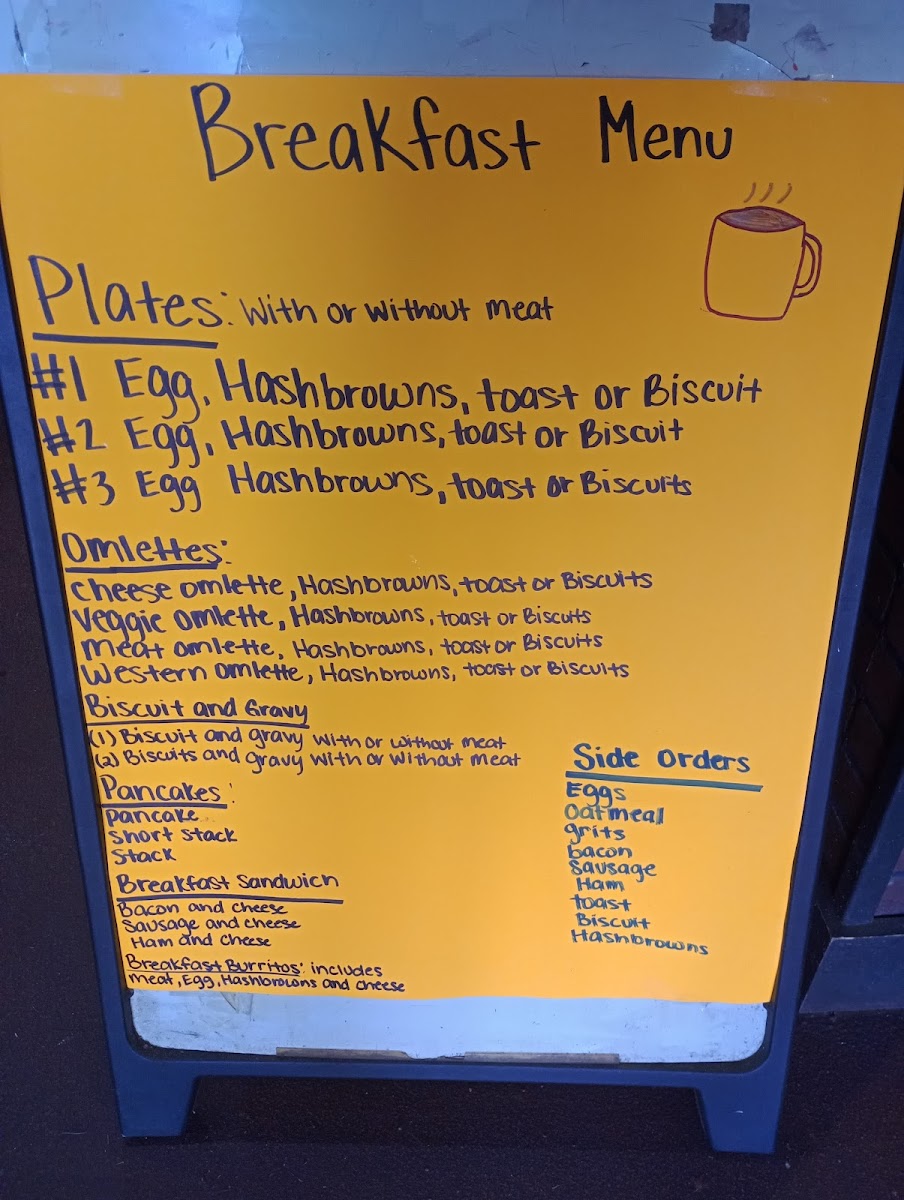 Breakfast Menu
Plates: with or without meat
#1 Egg, Hashbrowns, toast or Biscuit
#2 Egg, Hashbrowns, toast or Biscuit
#3 Egg Hashbrowns, toast or Biscuits
Omlettes:
cheese omlette, Hashbrowns, toast or Biscuits
veggie omlette, Hashbrowns, toast or Biscuits
meat omlette, Hashbrowns, toast or Biscuits
western omlette, Hashbrowns, toast or Biscuits
Biscuit and Gravy
(1) Biscuit and gravy with or without meat
(2) Biscuits and gravy with or without meat
Pancakes:
pancake
short stack
stack
Breakfast Sandwich
Bacon and cheese
Sausage and cheese
Ham and cheese
Breakfast Burritos: includes
meat, Egg, Hashbrowns and cheese
Side Orders
Eggs
oatmeal
grits
bacon
Sausage
Ham
toast
Biscuit
Hashbrowns